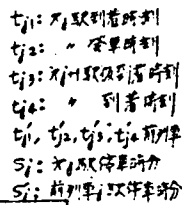 tj1: xj駅到着時刻
tj2: 〃 発車時刻
tj3: xj+1駅 到着時刻
tj4: 〃 到着時刻
tj1', tj2', tj3', tj4' 前列車
Sj: xj駅停車時分
Sj': 前列車j駅停車時分